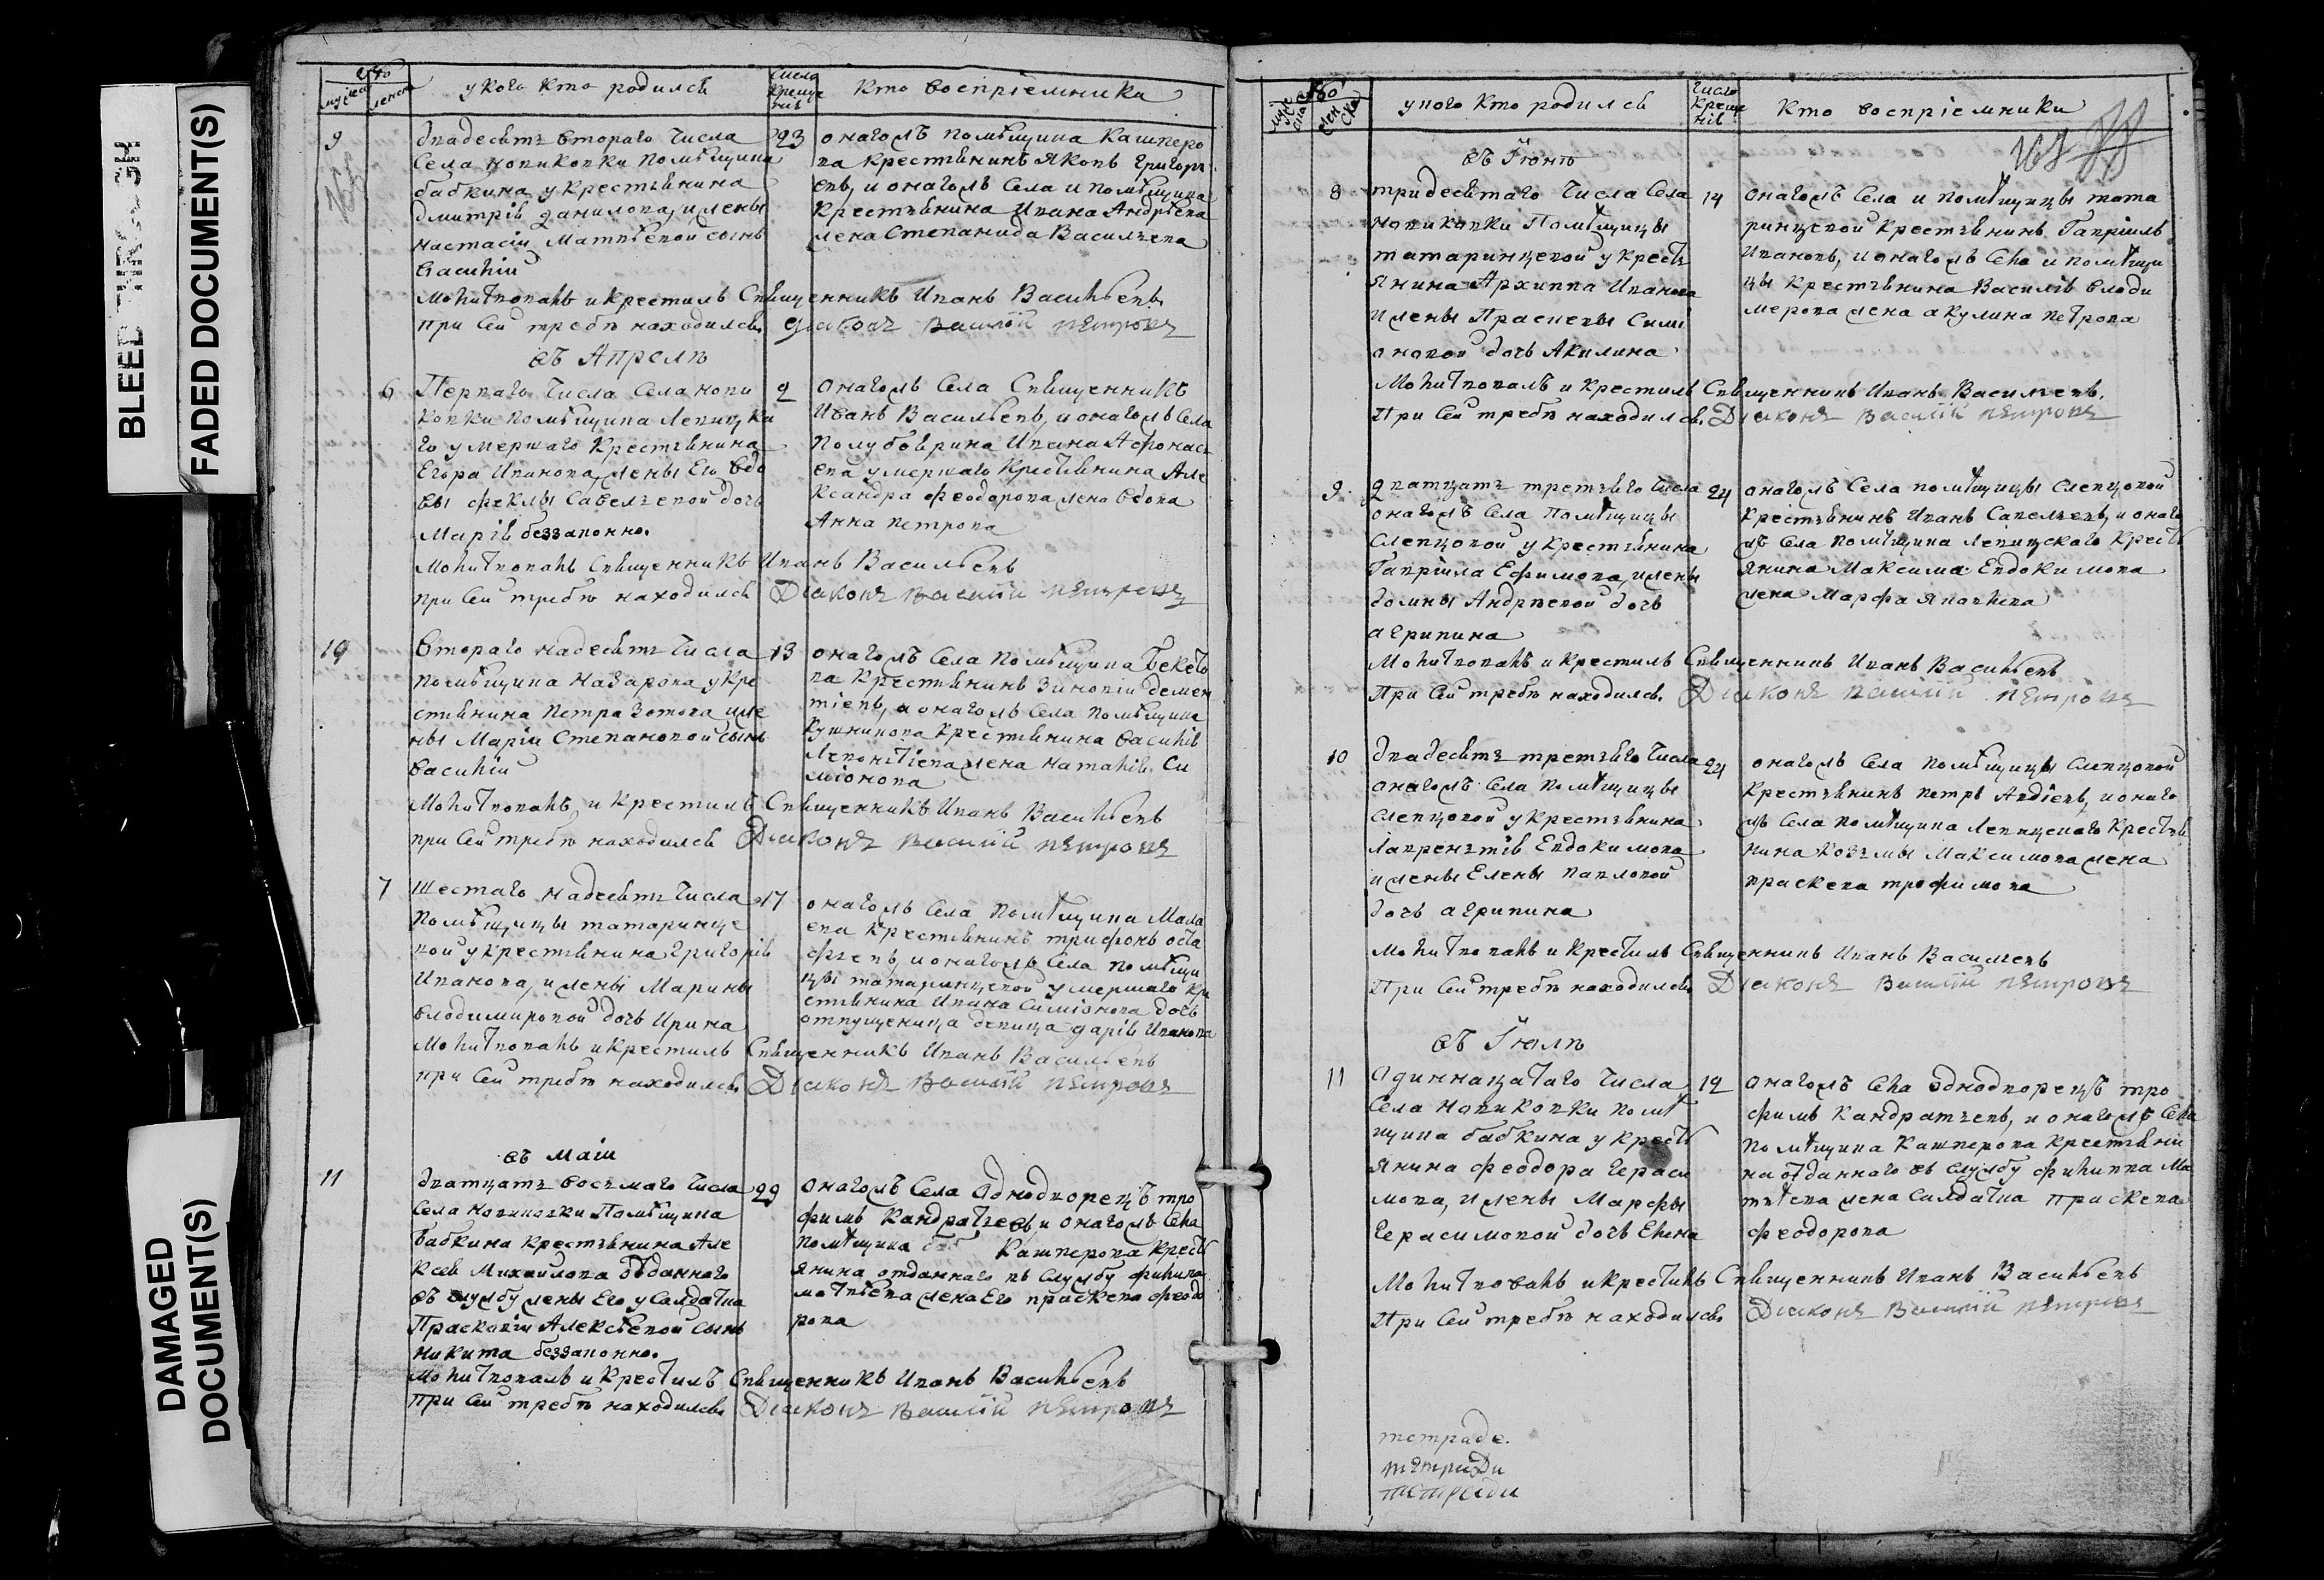 BLEED THRU
FADED DOCUMENT(S)
DAMAGED
DOCUMENT(S)
у кого кто родился
Число
креще
нія
кто воспріемники
9
дватдесять втораго числа
села новиковки помѣщика
бабкина у крестьянина
дмитрія данилова, и жены
настасіи Матвѣевой сынъ
василій
23
онагожъ помѣщика кашперо
ва крестьянинъ яковъ григорь
евъ, и онагожъ села и помѣщика
крестьянина ивана Андрѣева
жена Степанида Васильева
молитвовалъ и крестилъ Священникъ Иванъ Васильевъ
при сей требѣ находился діаконъ василій петровъ
въ Апрелѣ
6
Перваго числа села нови
ковки помѣщика левицка
го умершаго крестьянина
Егора Иванова, жены Его вдо
вы феклы Савельевой дочь
Марія беззаконно.
2
онагожъ села Священникъ
Иванъ Васильевъ, и онагожъ села
полубоярина Ивана Афонась
ева умершаго крестьянина Але
ксандра феодорова жена вдова
Анна петрова
молитвовалъ Священникъ Иванъ Васильевъ
при сей требѣ находился Діаконъ василій петровъ
10
втораго надесять числа
помѣщика Назарова у кре
стьянина петра Зотова и же
ны Маріи Степановой сынъ
василій
13
онагожъ села помѣщика бекето
ва крестьянинъ Зиновій демен
тіевъ, а онагожъ села помѣщика
кушникова крестьянина василія
леонтіева жена наталія си
міонова
Молитвовалъ, и крестилъ Священникъ Иванъ Васильевъ
при сей требѣ находился Діаконъ василій петровъ
7
шестаго надесять числа
помѣщицы татаринце
вой у крестьянина григорія
Иванова, и жены Марины
владимировой дочь Ирина
17
онагожъ села помѣщика Мала
ева крестьянинъ трифонъ оста
фьевъ, и онагожъ села помѣщи
цы татаринцевой умершаго кре
стьянина Ивана Симіонова дочь
отпущеница девица дарія Иванова
молитвовалъ и крестилъ Священникъ Иванъ Васильевъ
при сей требѣ находился Діаконъ василій петровъ
въ маіи
11
дватцать восьмаго числа
села новиковки Помѣщика
бабкина крестьянина Але
ксея Михаилова отданнаго
въ службу жены Его у Салдатка
Прасковіи Алексѣевой сынъ
никита беззаконно.
29
онагожъ села однодворецъ тро
фимъ кандратьевъ, и онагожъ села
помѣщика кашперова кресть
янина отданнаго въ службу филипа
матвѣева жена Его праскева феодо
рова
молитвовалъ и крестилъ Священникъ Иванъ Васильевъ
при сей требѣ находился Діаконъ василій петровъ
у кого кто родился
Число
креще
нія
кто воспріемники
въ Іюнѣ
8
тридесятаго числа села
новиковки Помѣщицы
татаринцевой у кресть
янина Архиппа Иванова
и жены Праскевы Сими
оновой дочь Акилина
14
онагожъ села и помѣщицы тата
ринцевой крестьянинъ Гавріилъ
Ивановъ, и онагожъ села и помѣщи
цы крестьянина Василія влади
мерова жена акулина петрова
молитвовалъ и крестилъ Священникъ Иванъ Васильевъ.
При сей требѣ находился. Діаконъ василій петровъ
9
дватцать третьяго числа
онагожъ села помѣщицы
слепцовой у крестьянина
Гавріила Ефимова, и жены
домны Андрѣевой дочь
агрипина
24
онагожъ села помѣщицы слепцовой
крестьянинъ Иванъ Савельевъ, и онаго
жъ села помѣщика левицскаго кресть
янина Максима Евдокимова
жена Марфа яковлева
Молитвовалъ и крестилъ Священникъ Иванъ Васильевъ
При сей требѣ находился. Діаконъ василій петровъ
10
двадесять третьяго числа
онагожъ села помѣщицы
слепцовой у крестьянина
лаврентія Евдокимова
и жены Елены павловой
дочь агрипина
24
онагожъ села помѣщицы слепцовой
крестьянинъ петръ Авдіевъ, и онаго
жъ села помѣщика левицскаго крестья
нина козьмы Максимова жена
праскева трофимова
молитвовалъ и крестилъ Священникъ Иванъ Васильевъ
При сей требѣ находился Діаконъ василій петровъ
въ Іюлѣ
11
одиннацатаго числа
села новиковки помѣ
щика бабкина у кресть
янина феодора гераси
мова, и жены Марфы
герасимовой дочь Елена
12
онагожъ села однодворецъ тро
фимъ кандратьевъ, и онагожъ села
помѣщика кашперова крестьяни
на отданнаго въ службу филиппа Ма
твѣева жена салдатка праскева
феодорова
молитвовалъ и крестилъ Священникъ Иванъ Васильевъ
При сей требѣ находился Діаконъ василій петровъ
тетраде.
тетради
тетради